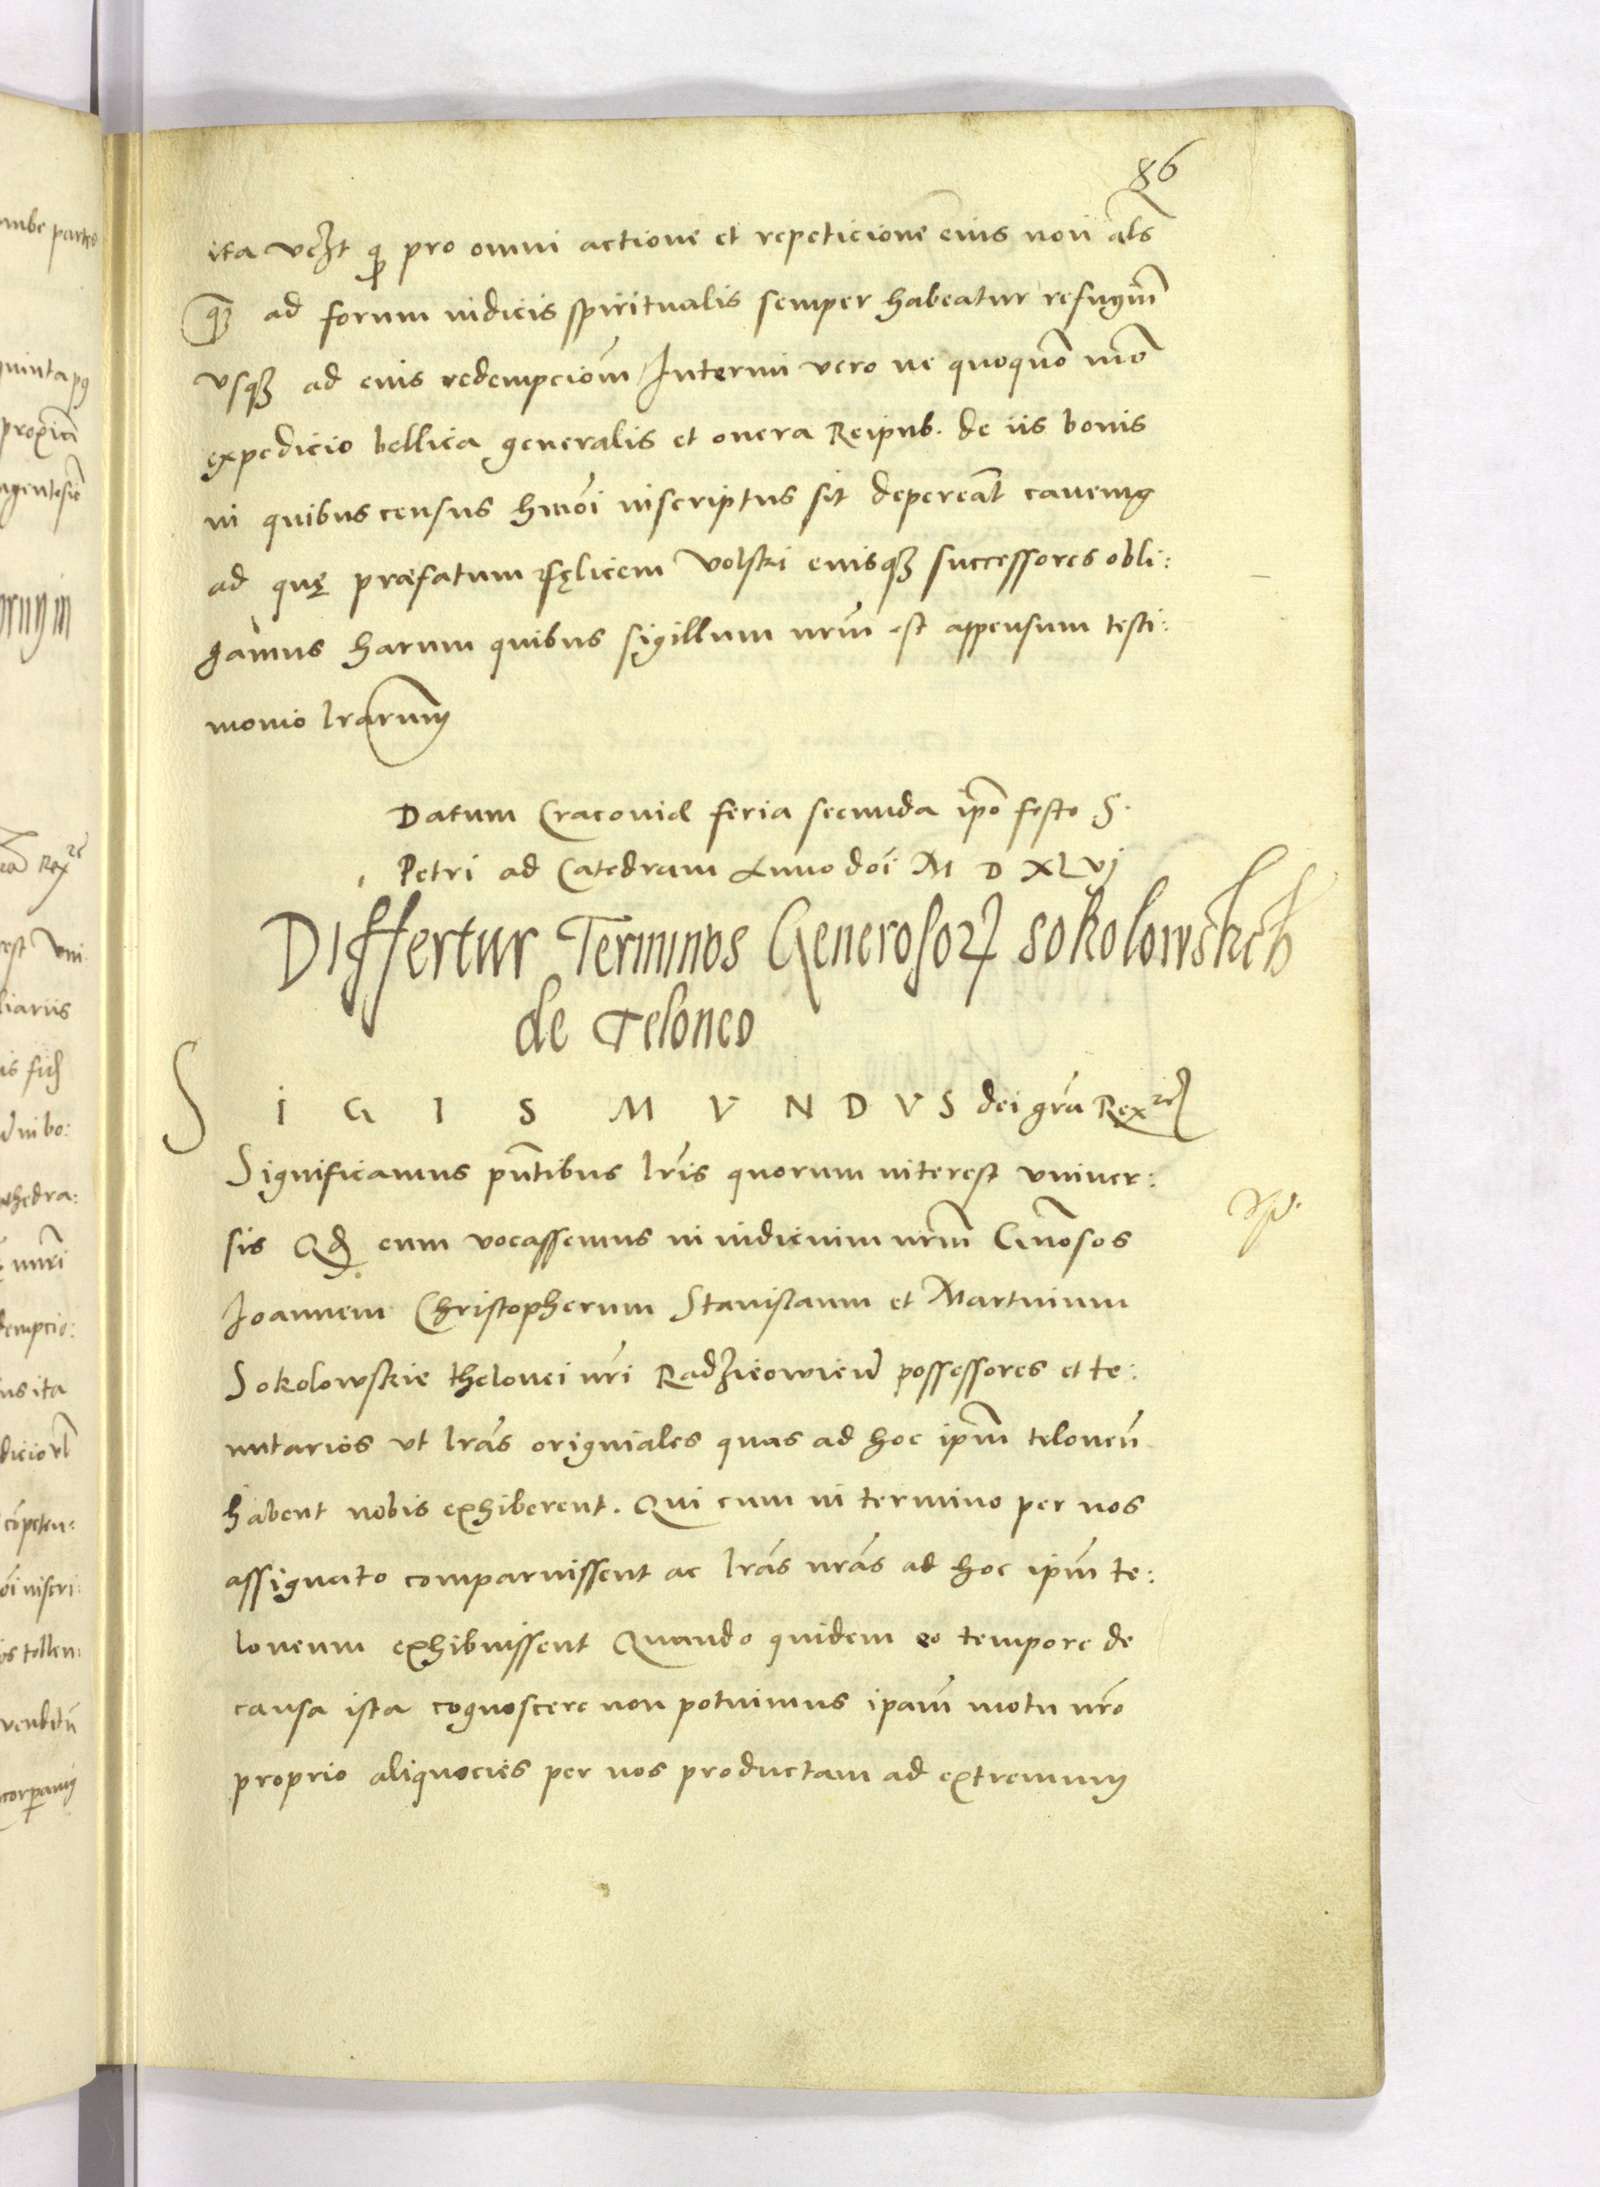 86
ita vɫt qɜ pro omni actione et repeticione eius non als̄
qɜ ad forum iudicis spiritualis semper habeatur refugiū
vsqɜ ad eius redempcioñ Interim vero ne quoquō mō
expedicio bellica generalis et onera Reipub. de iis bonis
in quibus census hmōi inscriptus sit depereāt caueing
ad quę præfatum Fęlicem Volski eiusqɜ successores obli:
gamus harum quibus sigillum nrm̄ est appensum testi:
monio lrarum
Datum Cracouiæ feria secunda ip̄o festo S.
Petri ad Catedram Anno dōi M D XLvj
Differtur Terminus Generosoꝝ Sokolowskich
de Teloneo
SIGISMVNDVS dei grā Rex ꝛc
Significamus pn̄tibus lrīs quorum interest vniuer:
sis Qđ cum vocassemus in iudicium nrm̄ Gn̄osos
Joannem Christopherum Stanislaum et Martinum
Sokolowskie thelonei nrī Radzieiowieñ possessores et te:
nutarios vt lrās originales quas ad hoc ipm̄ teloneū
habent nobis exhiberent. Qui cum in termino per nos
assignato comparuissent ac lrās nrās ad hoc ipm̄ te:
loneum exhibuissent Quando quidem eo tempore de
causa ista cognoscere non potuimus ipam̄ motu nrō
proprio aliquocies per nos productam ad extremum